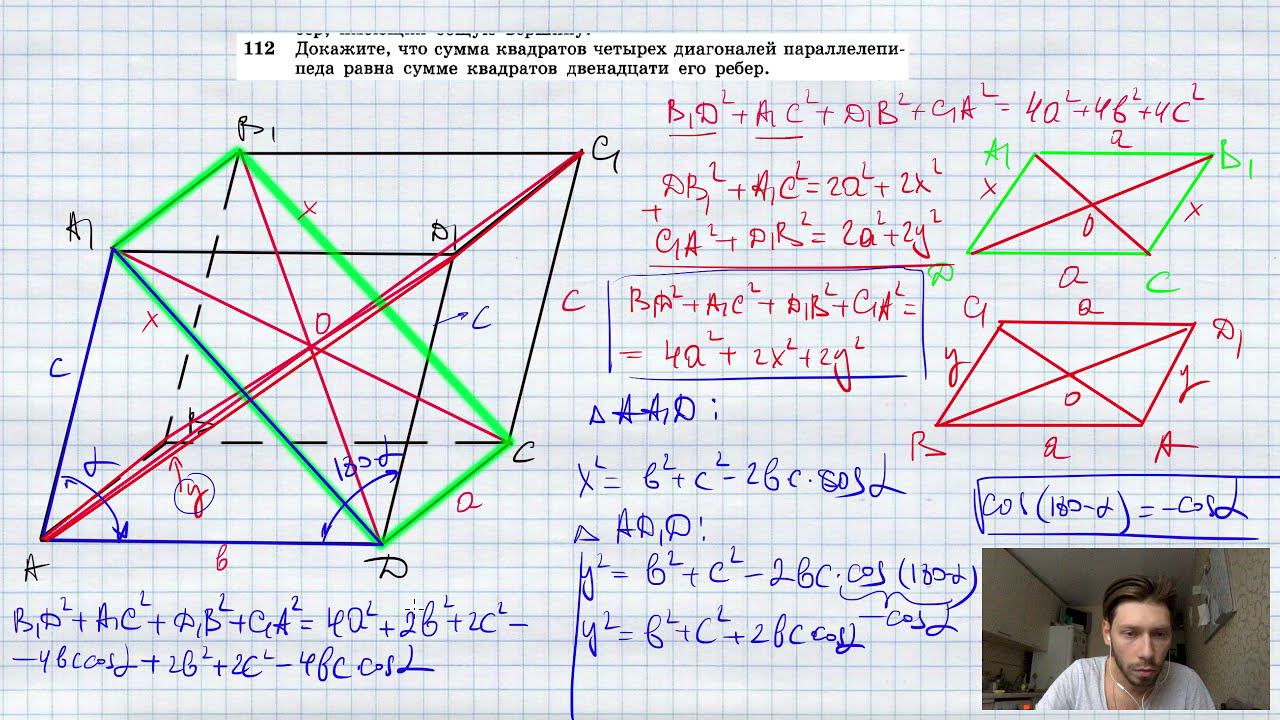 112 Докажите, что сумма квадратов четырех диагоналей параллелепи-
педа равна сумме квадратов двенадцати его ребер.
B₁D² + A₁C² + D₁B² + C₁A² = 4a² + 4b² + 4c²
DB₁² + A₁C² = 2a² + 2x²
+
C₁A² + D₁B² = 2a² + 2y²
B₁D² + A₁C² + D₁B² + C₁A² =
= 4a² + 2x² + 2y²
△ AA₁D:
x² = b² + c² - 2bc · cosα
△ AD₁D:
y² = b² + c² - 2bc · cos(180-α)
-cosα
y² = b² + c² + 2bc cosα
cos(180-α) = -cosα
B₁D² + A₁C² + D₁B² + C₁A² = 4a² + 2b² + 2c² -
-4bc cosα + 2b² + 2c² - 4bc cosα
B₁
C₁
A₁
D₁
x
O
x
C
c
c
B
α
180-α
y
C
a
A
b
D
A₁
a
B₁
x
O
x
D
a
C
C₁
a
D₁
y
O
y
B
a
A